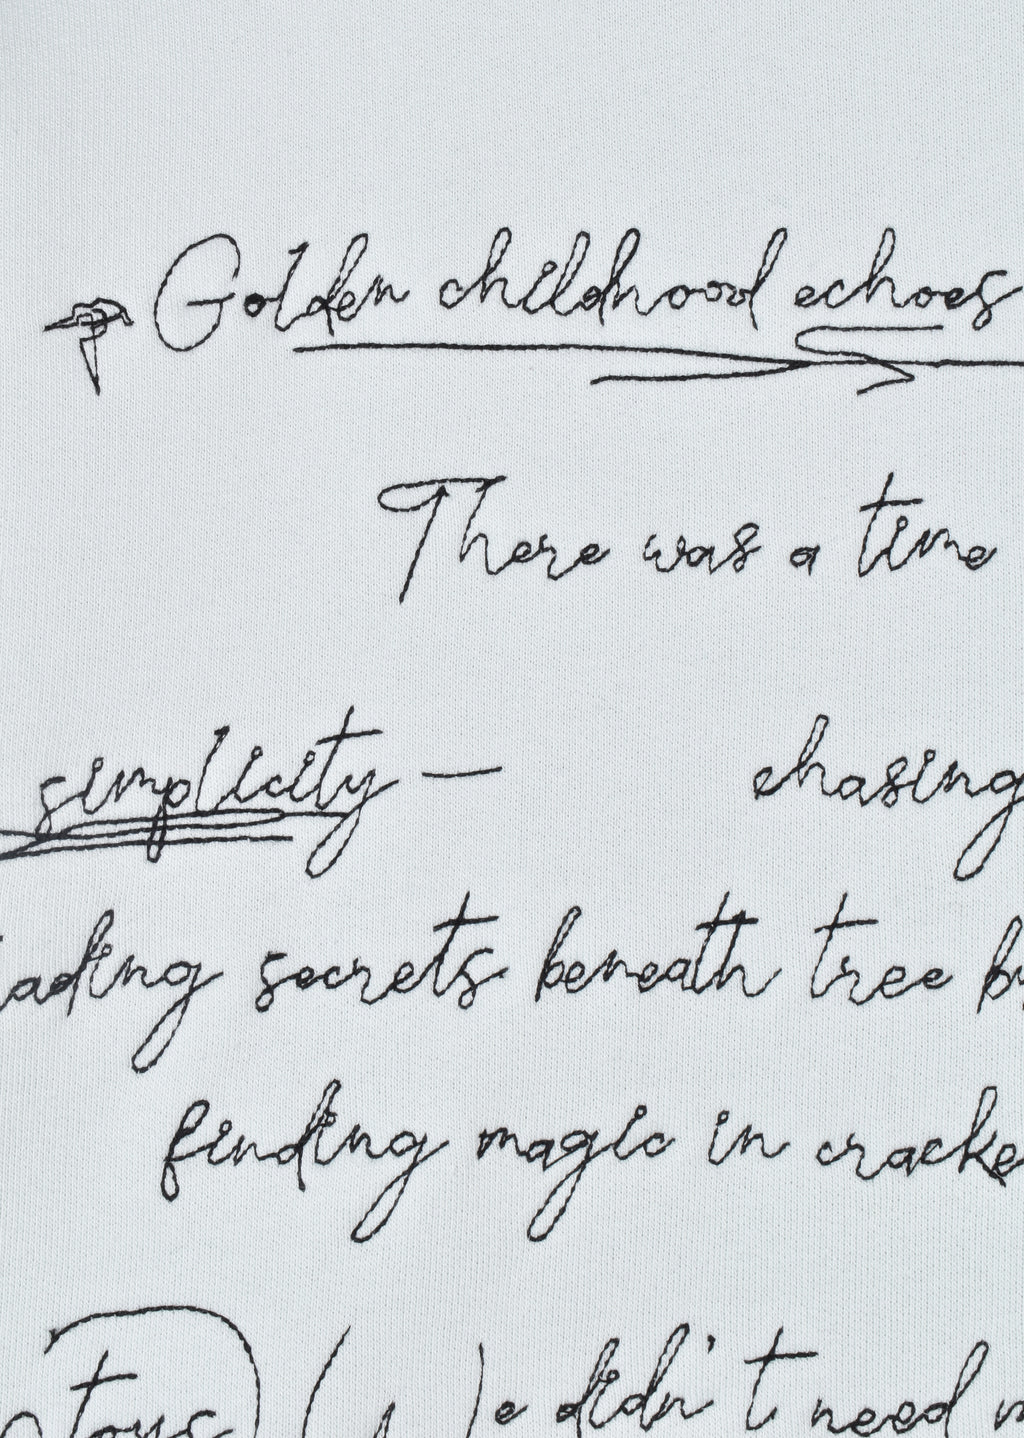 Golden childhood echoes
There was a time
simplicity — chasing
secrets beneath tree
finding magic in
toys We didn't need